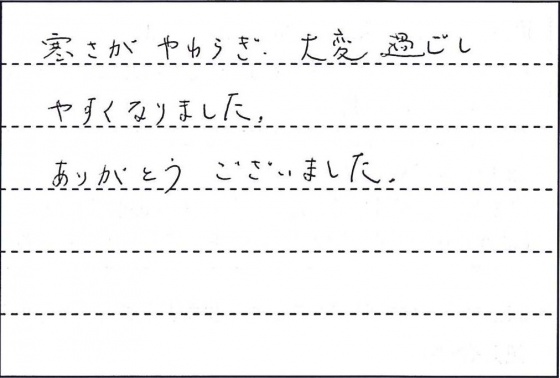 寒さが やわらぎ、大変 過ごし
やすくなりました。
ありがとう ございました。